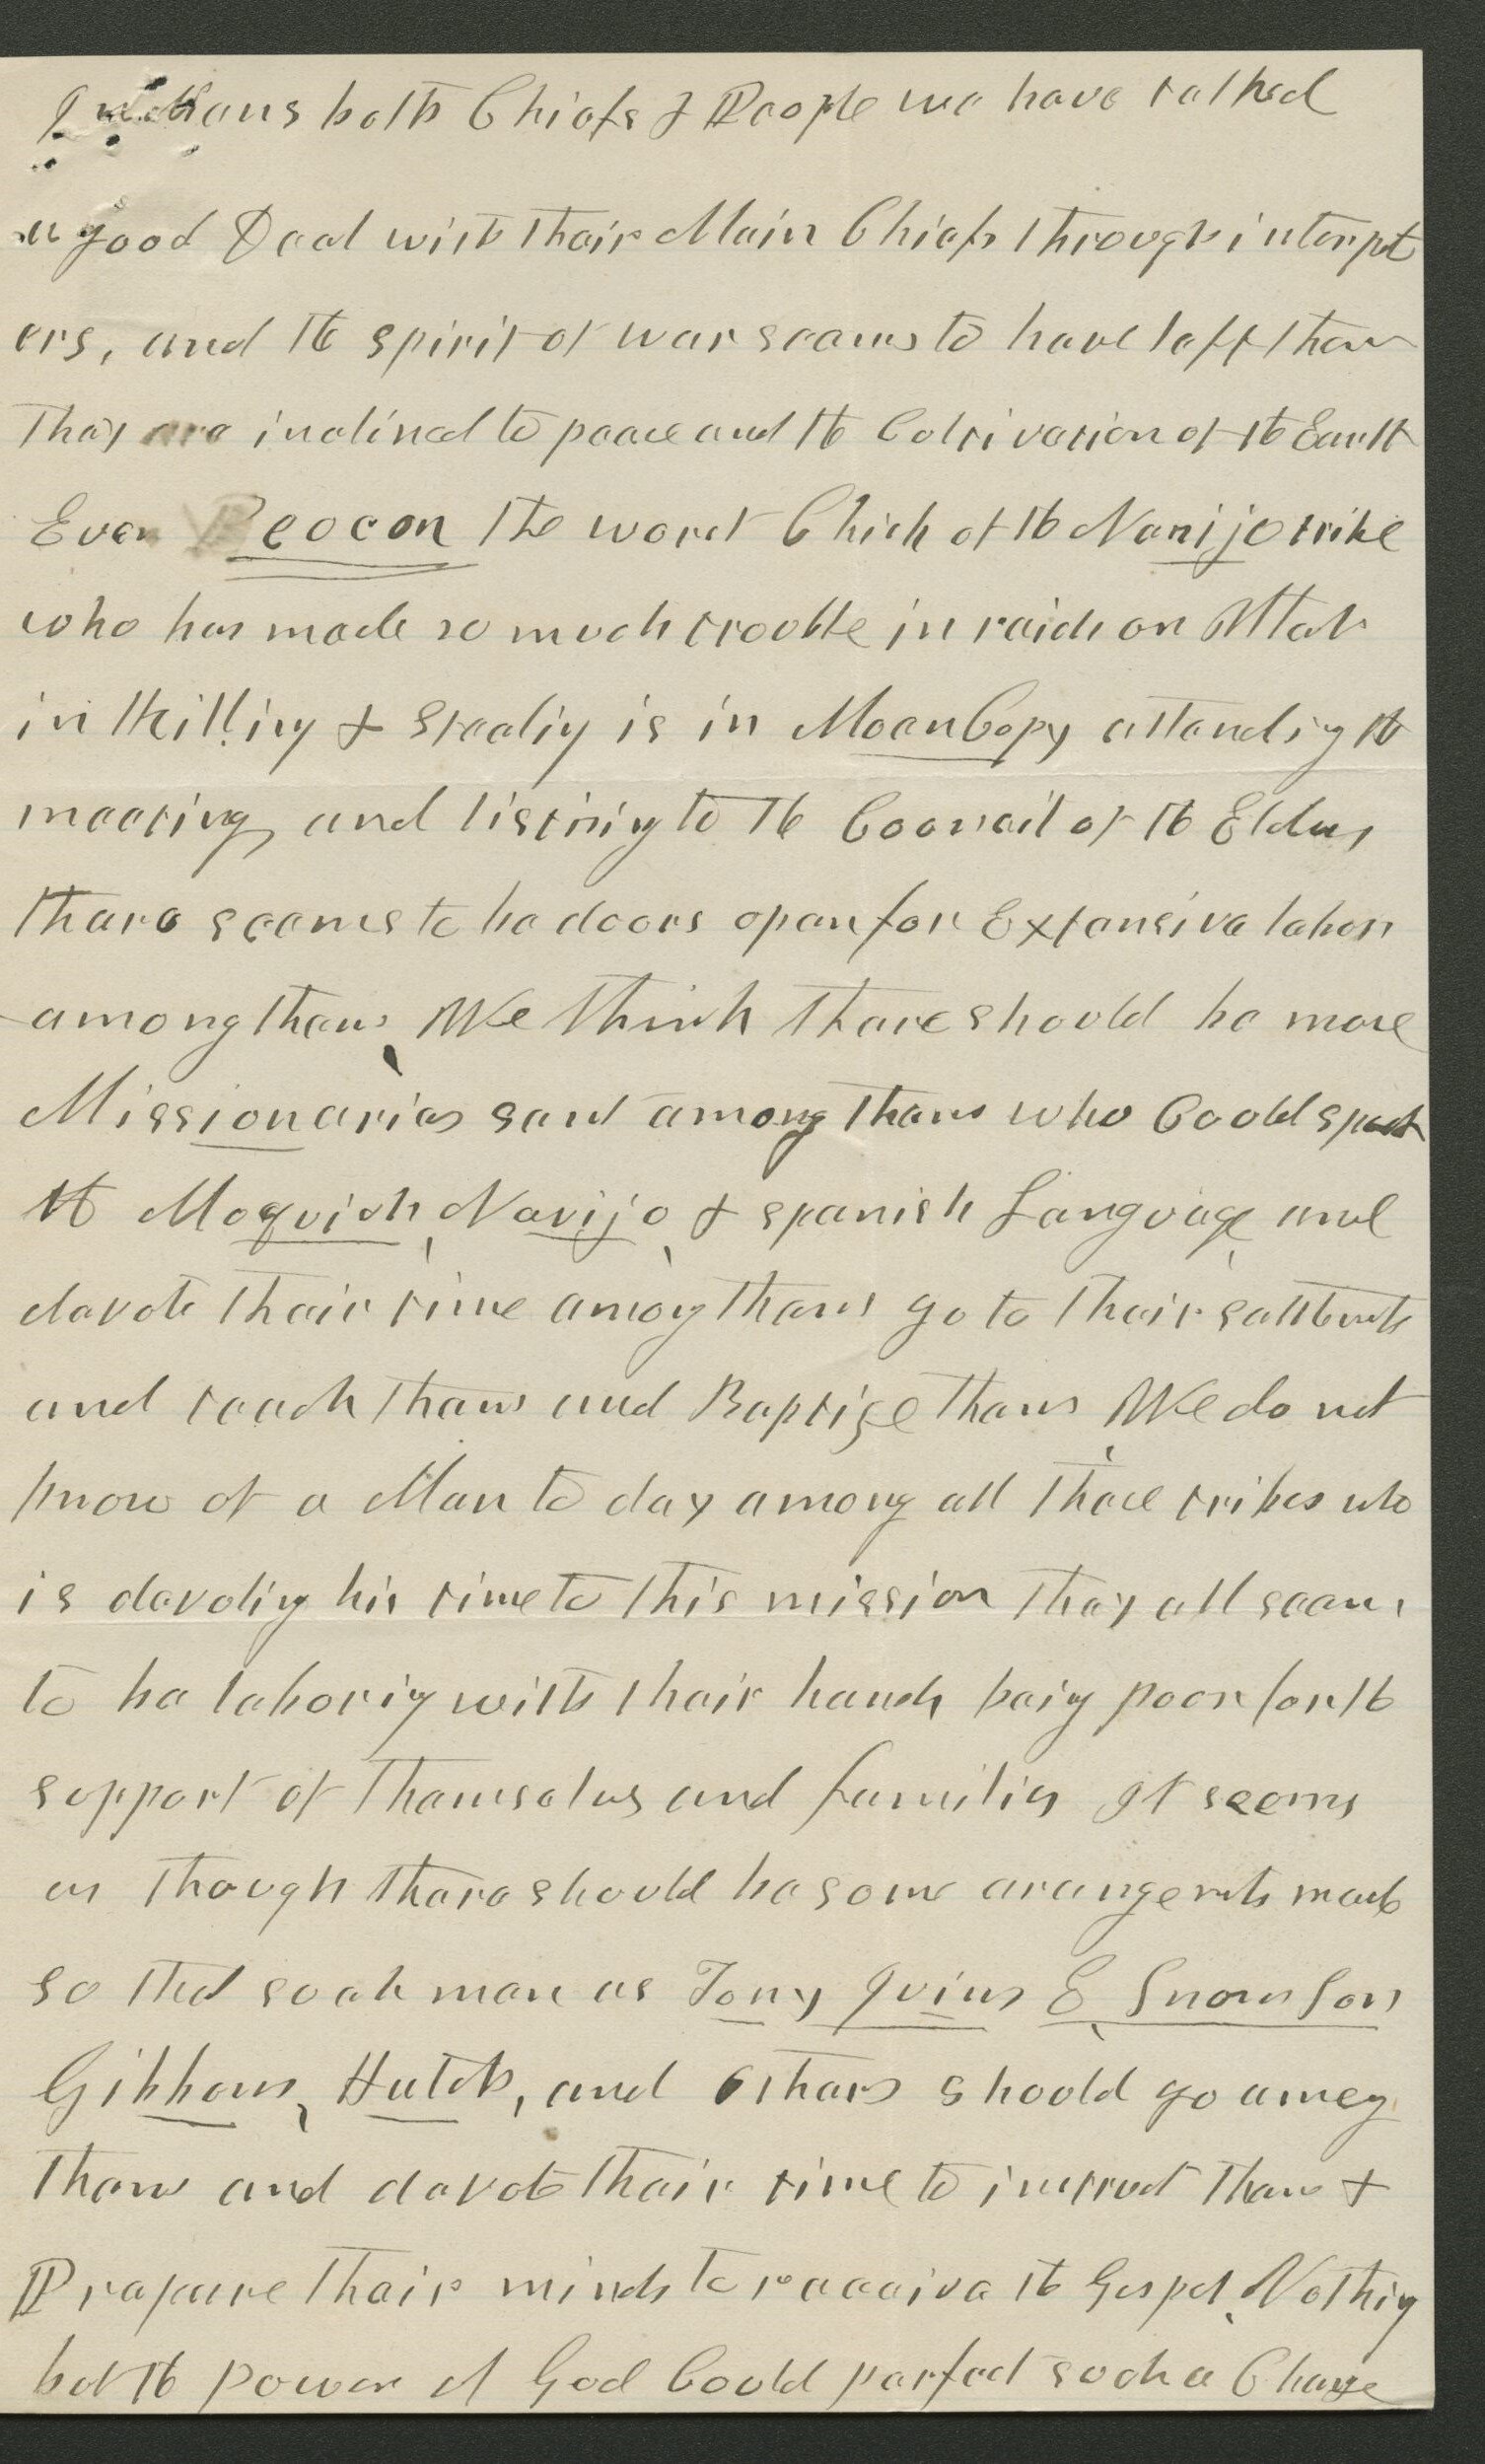 Indians both Chiefs & People we have talked
a good Deal with their Main Chiefs through interpet
ers, and the spirit of war seems to have left them
They are inclined to peace and the Coltivation of the Earth
Even Peocon the worst Chief of the Navijo tribe
who has made so much trooble in raids on Utah
in Killing & Stealing is in Moancopy attending the
meeting and listning to the Councail of the Elders
there seems to be doors open for Extensive labor
among them, We think there should be more
Missionaries sent among them who Could speak
the Moquich, Navijo, & spanish Language, and
devote their time among them go to their settlemets
and teach them and Baptize them, We do not
know of a Man to day among all these tribes who
is devoting his time to this mission they all seem
to be laboring with their hands being poor for the
support of themselves and families It seems
as though there should be some arangemets made
so that such men as Tony Ivins E, Snow Son
Gibbons, Hatch, and others should go among
them and devote their time to instruct them &
Prepare their minds to receive the Gospel, Nothing
but the power of God Could perfect such a Change